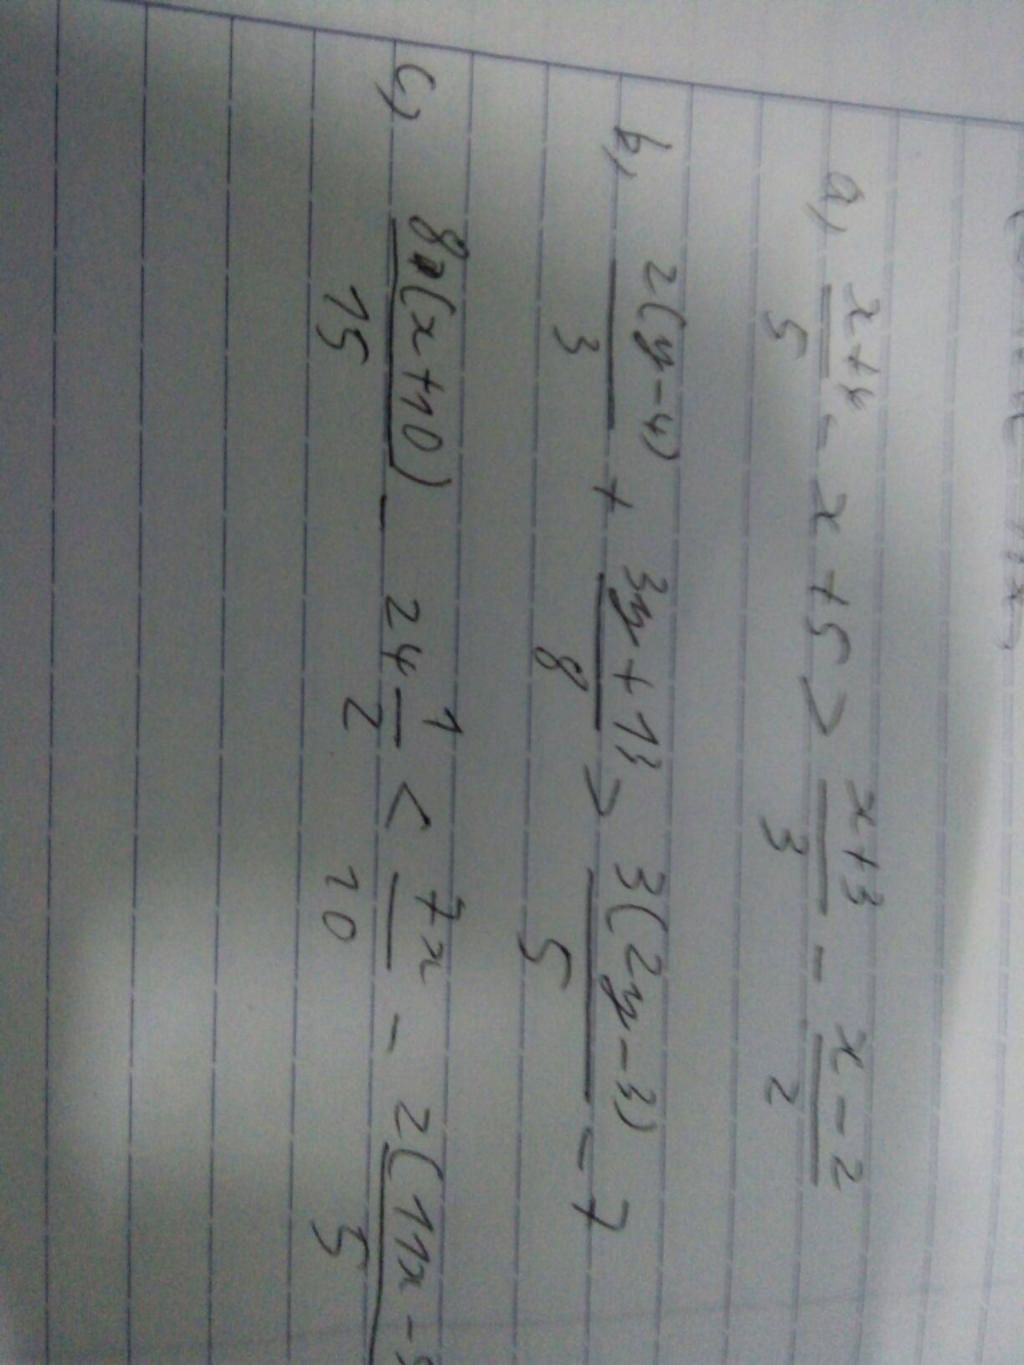 a, (x+4)/5 - x + 5 > (x+3)/3 - (x-2)/2
b, 2(y-4)/3 + (3y+13)/8 > 3(2y-3)/5 - 7
c, 8(x+10)/15 - 24 1/2 < 7x/10 - 2(11x-